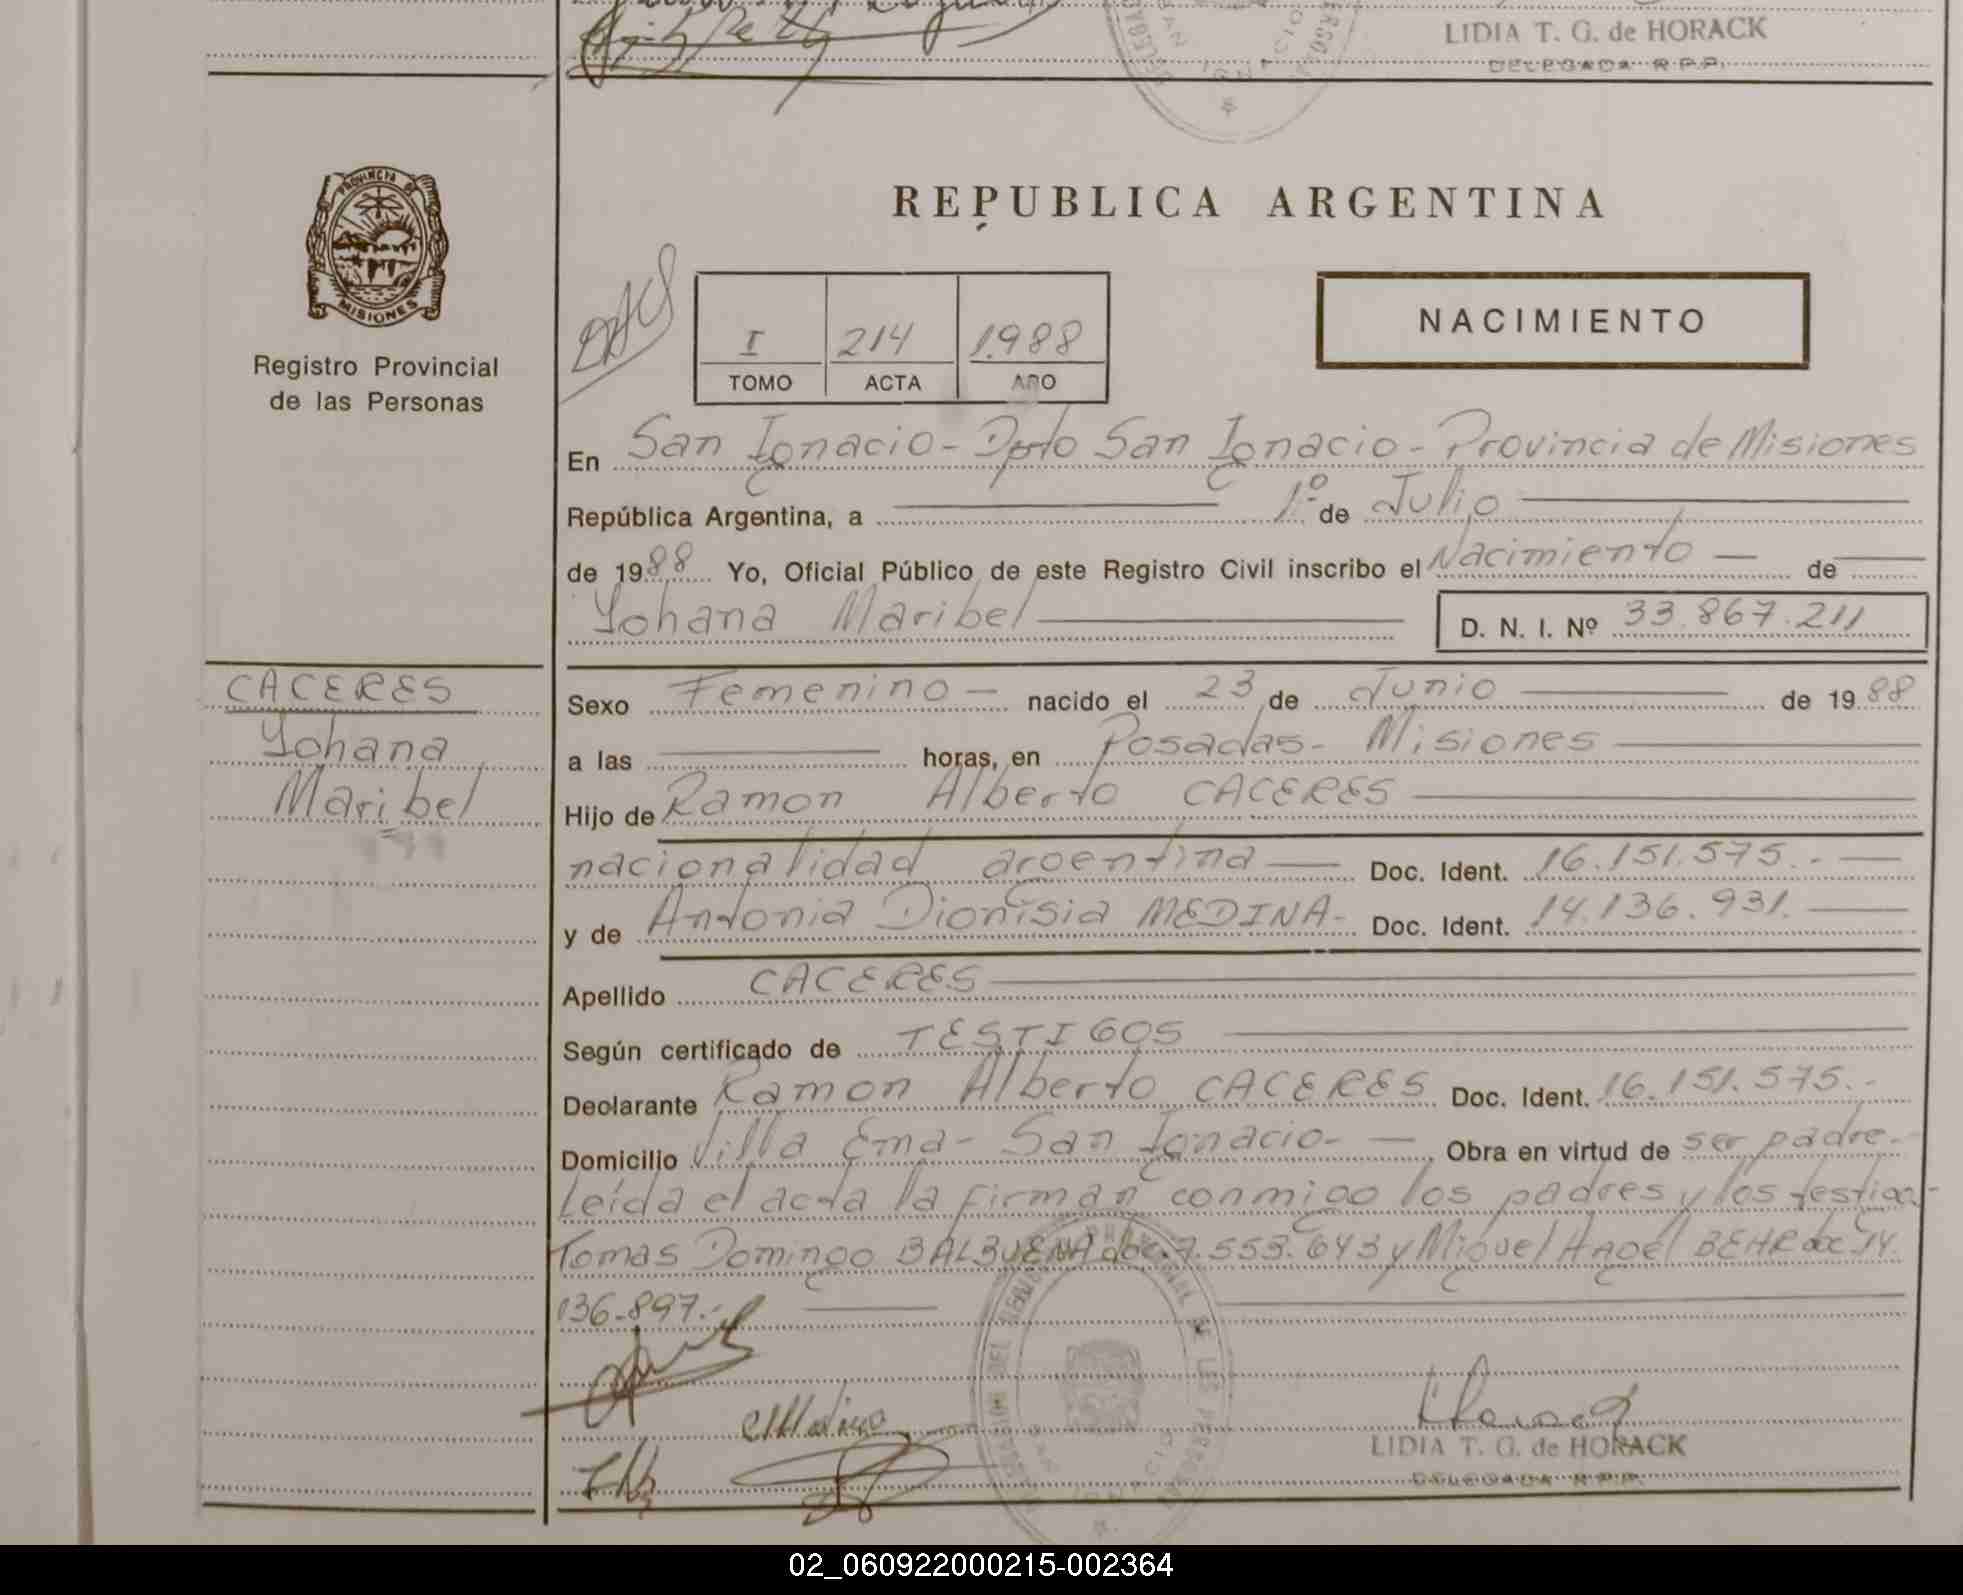 LIDIA T. G. de HORACK
DELEGADA R.P.P.
PROVINCIA DE
MISIONES
Registro Provincial
de las Personas
REPUBLICA ARGENTINA
I 214 1.988
TOMO ACTA AÑO
NACIMIENTO
En San Ignacio - Dpto San Ignacio - Provincia de Misiones
República Argentina, a 1º de Julio
de 1988 Yo, Oficial Público de este Registro Civil inscribo el Nacimiento de
Yohana Maribel
D. N. I. Nº 33.867.211
CACERES
Yohana
Maribel
Sexo Femenino - nacido el 23 de Junio de 1988
a las horas, en Posadas - Misiones
Hijo de Ramon Alberto CACERES
nacionalidad argentina Doc. Ident. 16.151.575.-
y de Antonia Dionisia MEDINA - Doc. Ident. 14.136.931.
Apellido CACERES
Según certificado de TESTIGOS
Declarante Ramon Alberto CACERES Doc. Ident. 16.151.575.-
Domicilio Villa Ema - San Ignacio - Obra en virtud de ser padre.-
Leída el acta la firman conmigo los padres y los testigos
Tomas Domingo BALBUENA doc. 7.553.643 y Miguel Angel BEHR doc 14.
136.897.-
LIDIA T. G. de HORACK
DELEGADA R.P.P.
02_060922000215-002364